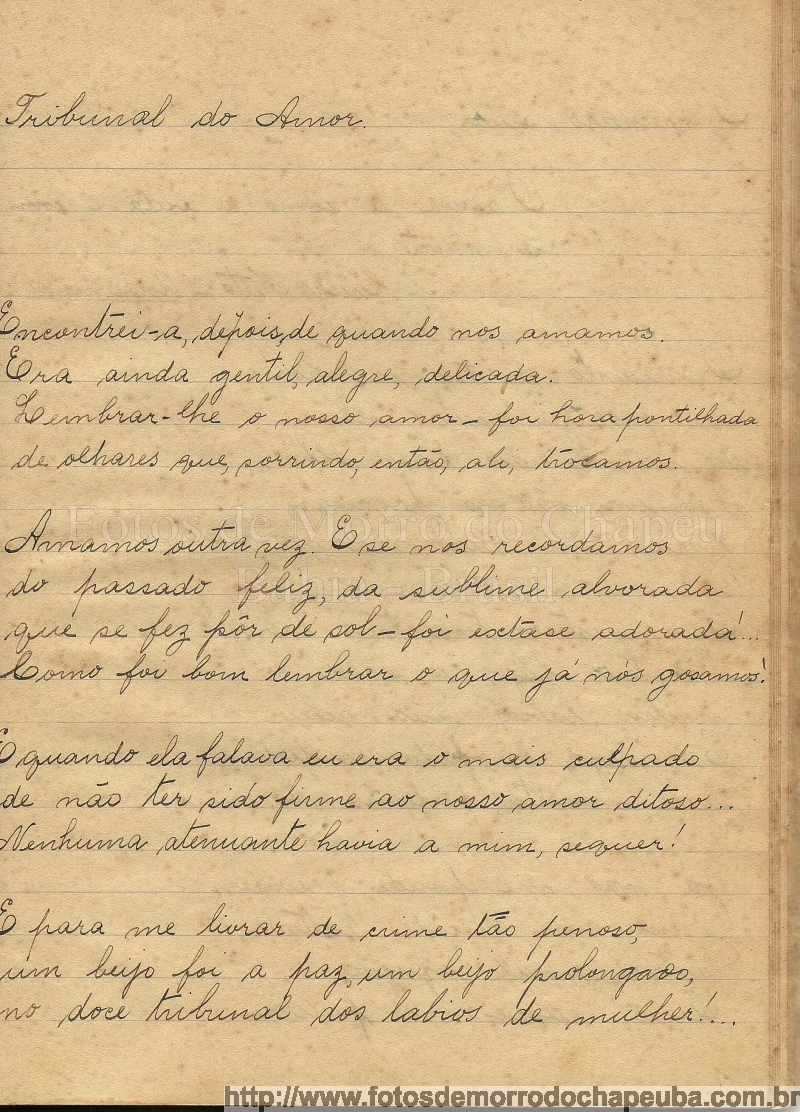 Tribunal do Amor.
Encontrei-a, depois, de quando nos amamos.
Era ainda gentil, alegre, delicada.
Lembrar-lhe o nosso amor - foi hora pontilhada
de olhares que, sorrindo, então, ali, trocamos.
Fotos de Morro do Chapéu
Bahia - Brasil
Amamos outra vez. E se nos recordamos
do passado feliz, da sublime alvorada
que se fez pôr de sol - foi extase adorada!...
Como foi bom lembrar o que já nós gosamos!
E quando ela falava eu era o mais culpado
de não ter sido firme ao nosso amor ditoso...
Nenhuma atenuante havia a mim, sequer!
E para me livrar de crime tão penoso,
um beijo foi a paz, um beijo prolongado,
no doce tribunal dos labios de mulher!...
http://www.fotosdemorrodochapeuba.com.br